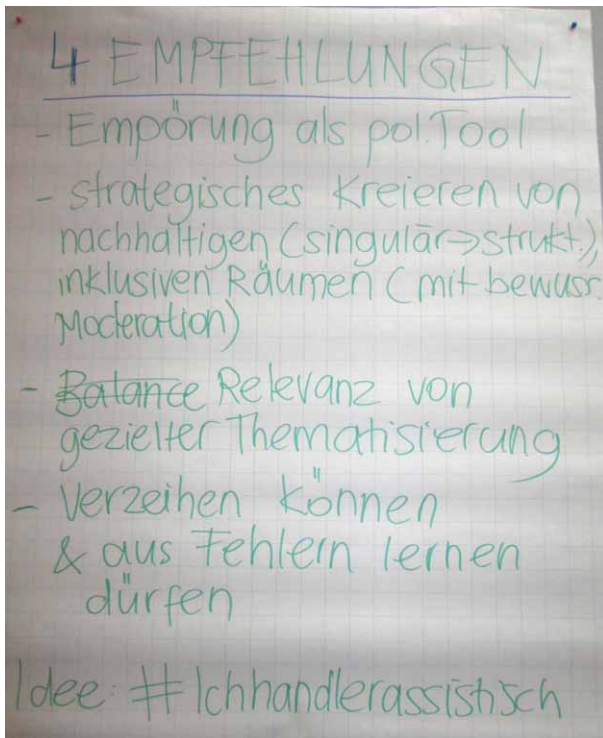 4 EMPFEHLUNGEN
- Empörung als pol. Tool
- strategisches Kreieren von
nachhaltigen (singulär→strukt.),
inklusiven Räumen (mit bewusr.
Moderation)
- Balance Relevanz von
gezielter Thematisierung
- Verzeihen können
& aus Fehlern lernen
dürfen
Idee: #Ichhandlerassistisch